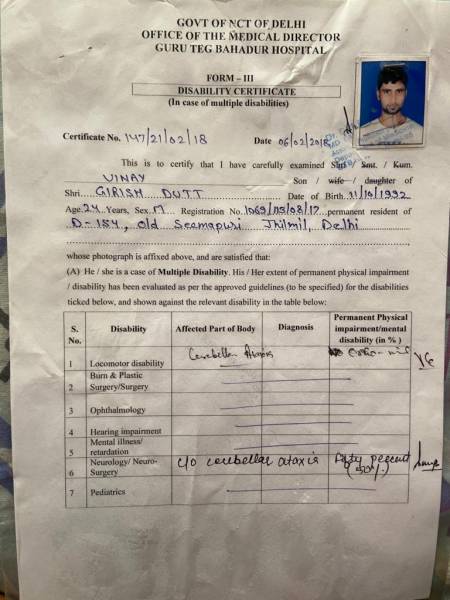 GOVT OF NCT OF DELHI
OFFICE OF THE MEDICAL DIRECTOR
GURU TEG BAHADUR HOSPITAL
FORM – III
DISABILITY CERTIFICATE
(In case of multiple disabilities)
Certificate No. 147/21/02/18 Date 06/02/2018
This is to certify that I have carefully examined Shri/ Smt. / Kum.
VINAY Son / wife / daughter of
Shri. GIRISH DUTT Date of Birth. 31/10/1992
Age. 24 Years, Sex. M Registration No. 1069/ /08/17 permanent resident of
D-154, Old Seemapuri Jhilmil, Delhi
whose photograph is affixed above, and are satisfied that:
(A) He / she is a case of Multiple Disability. His / Her extent of permanent physical impairment
/ disability has been evaluated as per the approved guidelines (to be specified) for the disabilities
ticked below, and shown against the relevant disability in the table below:
S. No. Disability Affected Part of Body Diagnosis Permanent Physical impairment/mental disability (in % )
1 Locomotor disability Cerebellar Ataxia
2 Burn & Plastic Surgery/Surgery
3 Ophthalmology
4 Hearing impairment
5 Mental illness/ retardation
6 Neurology/ Neuro-Surgery c/o cerebellar ataxia Fifty percent (50%)
7 Pediatrics